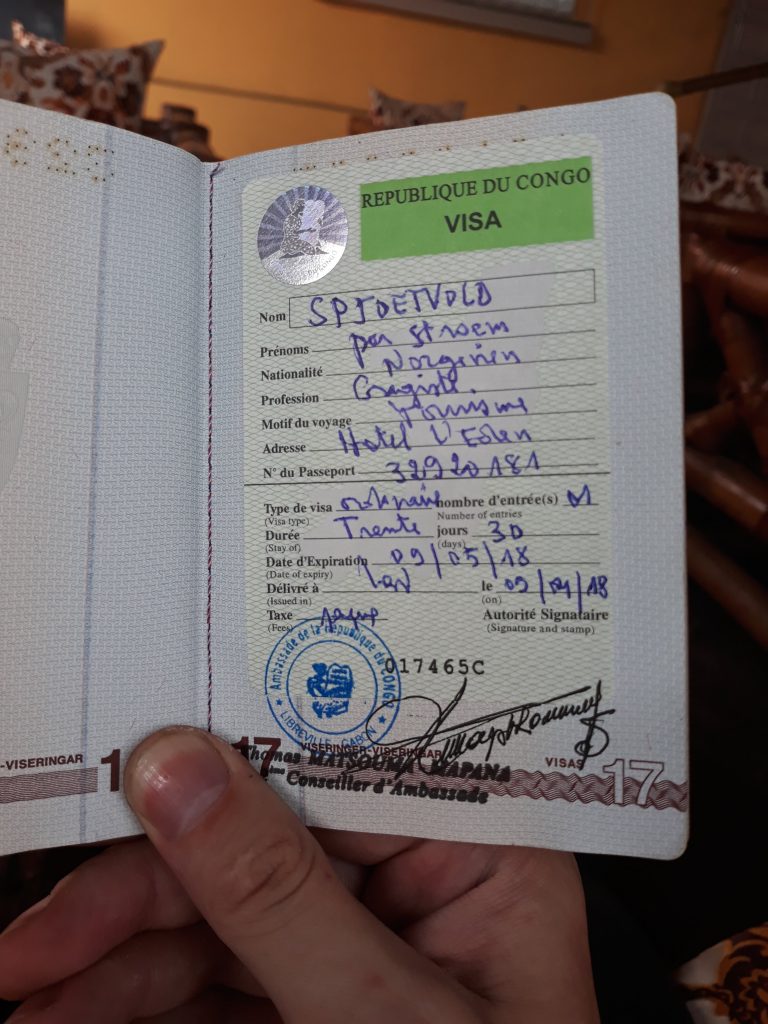 REPUBLIQUE DU CONGO
VISA
Nom SPJDETVOLD
Prénoms per stroem
Nationalité Norgevien
Profession
Motif du voyage Tourisme
Adresse Hotel L'Eden
N° du Passeport 32920181
Type de visa ordinaire nombre d'entrée(s) 01
(Visa type) Number of entries
Durée Trente jours 30
(Stay of) (days)
Date d'Expiration 09/05/18
(Date of expiry)
Délivré à Lbv le 09/04/18
(Issued in) (on)
Taxe Autorité Signataire
(Fees) (Signature and stamp)
Ambassade de la République du CONGO
LIBREVILLE - GABON
017465C
-VISERINGAR
17
VISERINGER-VISERINGAR
VISAS
17
Thomas MATSOUMA MAPANA
Conseiller d'Ambassade